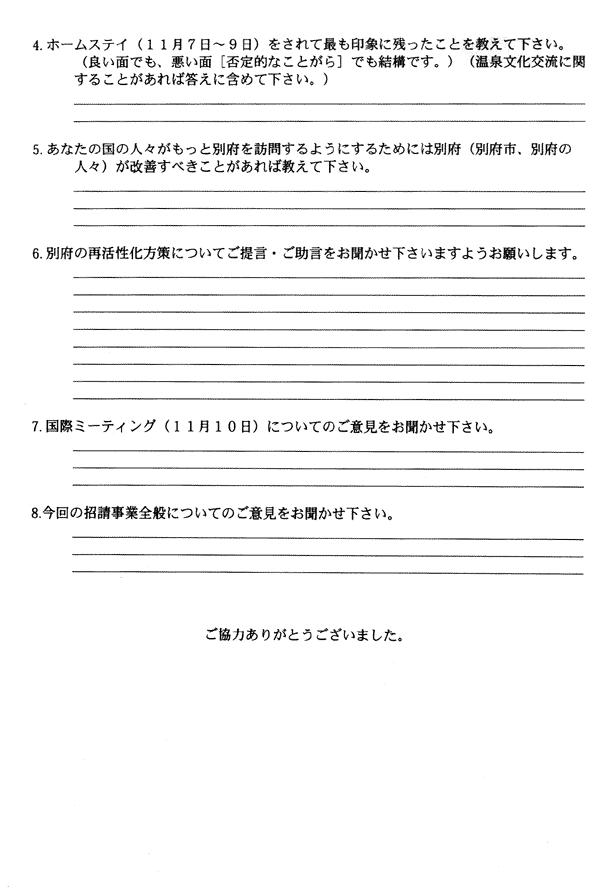 4. ホームステイ（１１月７日～９日）をされて最も印象に残ったことを教えて下さい。
（良い面でも、悪い面［否定的なことがら］でも結構です。）（温泉文化交流に関
することがあれば答えに含めて下さい。）
5. あなたの国の人々がもっと別府を訪問するようにするためには別府（別府市、別府の
人々）が改善すべきことがあれば教えて下さい。
6. 別府の再活性化方策についてご提言・ご助言をお聞かせ下さいますようお願いします。
7. 国際ミーティング（１１月１０日）についてのご意見をお聞かせ下さい。
8.今回の招請事業全般についてのご意見をお聞かせ下さい。
ご協力ありがとうございました。